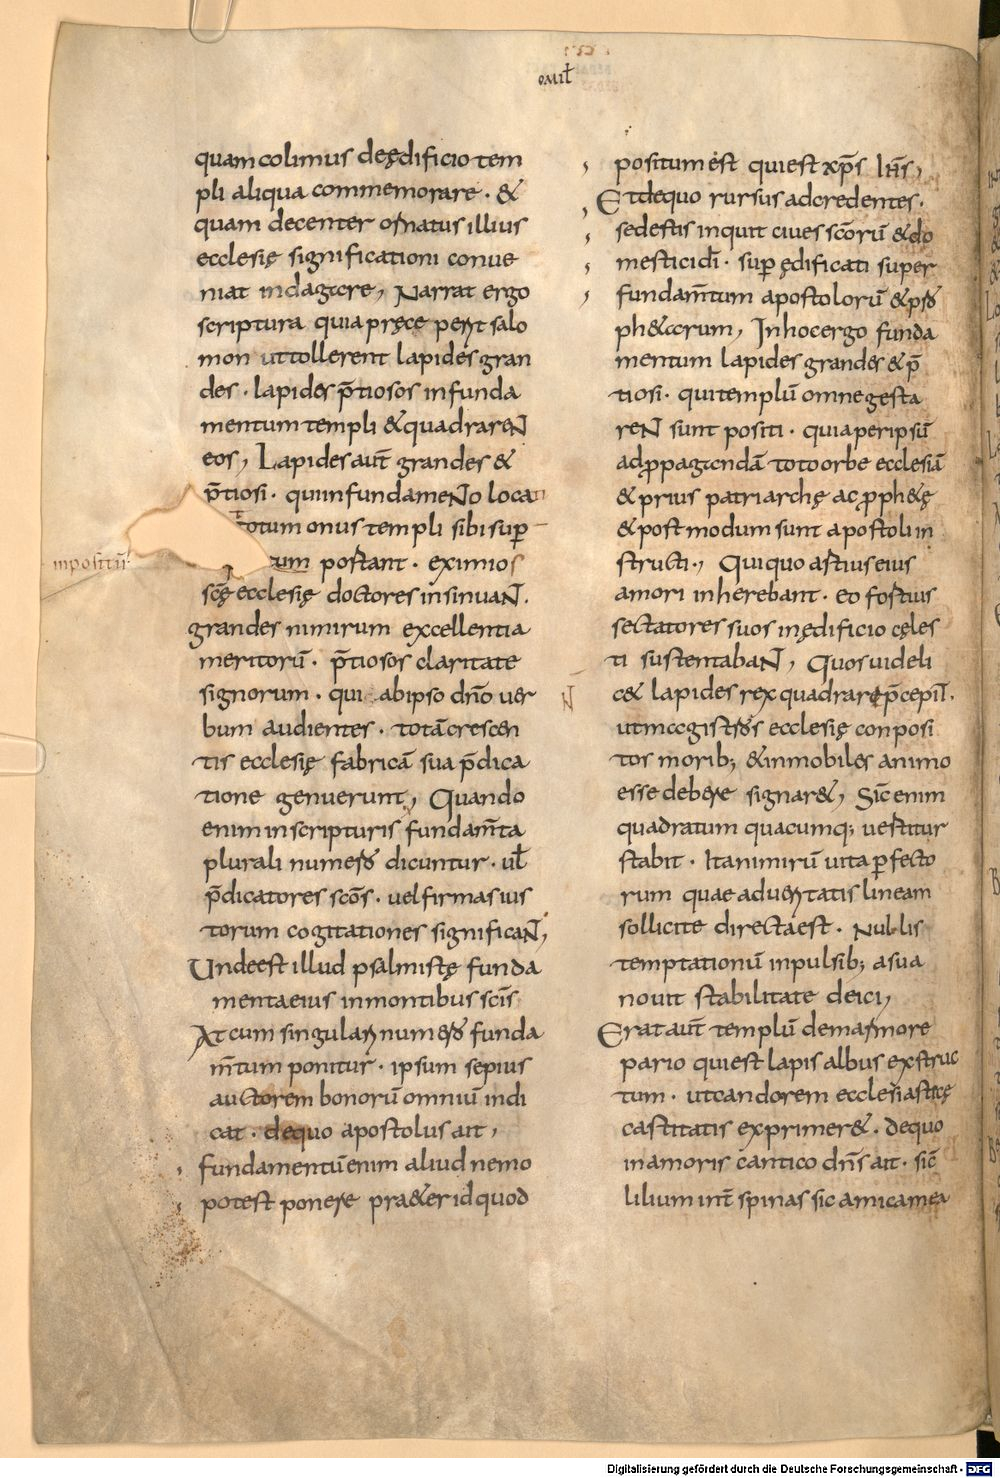 omīł
quam colimus deędificio tem
pli aliqua commemorare · &
quam decenter ornatus illius
ecclesię significationi conue
niat indagare, Narrat ergo
scriptura quia pręcepert salo
mon uttollerent lapides gran
des · lapides p̄tiosos infunda
mentum templi & quadrareN
eos, Lapides aut̄ grandes &
p̄tiosi · quiinfundameNo loca
totum onus templi sibi sup̄
impositū
um portant · eximios
sc̄ę ecclesię doctores insinuaN̄ ·
grandes nimirum excellentia
meritorū · p̄tiosos claritate
signorum · qui abipso dn̄o uer
bum audientes · totā crescen
tis ecclesię fabricā sua p̄dica
tione genuerunt, Quando
enim inscripturis fundam̄ta
plurali numero dicuntur · uł
p̄dicatores sc̄os · uel firmas ius
torum cogitationes significaN̄,
Undeest illud psalmistę funda
mentaeius inmontibus sc̄is
At cum singulari numero funda
m̄tum ponitur · ipsum sepius
auctorem bonorū omniū indi
cat · dequo apostolus ait,
fundamentū enim aliud nemo
potest ponere pra&er id quod
positum est qui est xp̄s ih̄s,
Etdequo rursus adcredentes ·
sedestis inquit ciues sc̄orū & do
mesticidī · sup̄ ędificati super
fundam̄tum apostolorū & pro
ph&arum, Inhocergo funda
mentum lapides grandes & p̄
tiosi · quitemplū omne gesta
reN sunt positi · quia peripsū
adp̱pagandā totoorbe ecclesiā
& prius patriarchę ac p̱ph&ę
& postmodum sunt apostoli in
structi ·, Quiquo artius eius
amori inherebant · eo fortius
sectatores suos inędificio cęles
ti sustentabaN̄, Quos uideli
N̄
c& lapides rex quadrare p̄cepiT ·
utmagistros ecclesię conposi
tos morib; & inmobiles animo
esse debere signar&, Sic̄ enim
quadratum quacumq; uertitur
stabit · Itanimirū uita perfecto
rum quae aduersitatis lineam
sollicite directaest · Nullis
temptationū inpulsib; asua
nouit stabilitate deici,
Erat aut̄ templū demarmore
pario quiest lapis albus exstruc
tum · utcandorem ecclesiasticę
castitatis exprimer& · dequo
inamoris cantico dn̄s ait · sic̄
lilium int̄ spinas sic amicamea
Digitalisierung gefördert durch die Deutsche Forschungsgemeinschaft · DFG